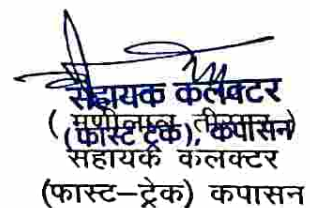 सहायक कलक्टर
(फास्ट ट्रेक), कपासन
सहायक कलक्टर
(फास्ट–ट्रेक) कपासन